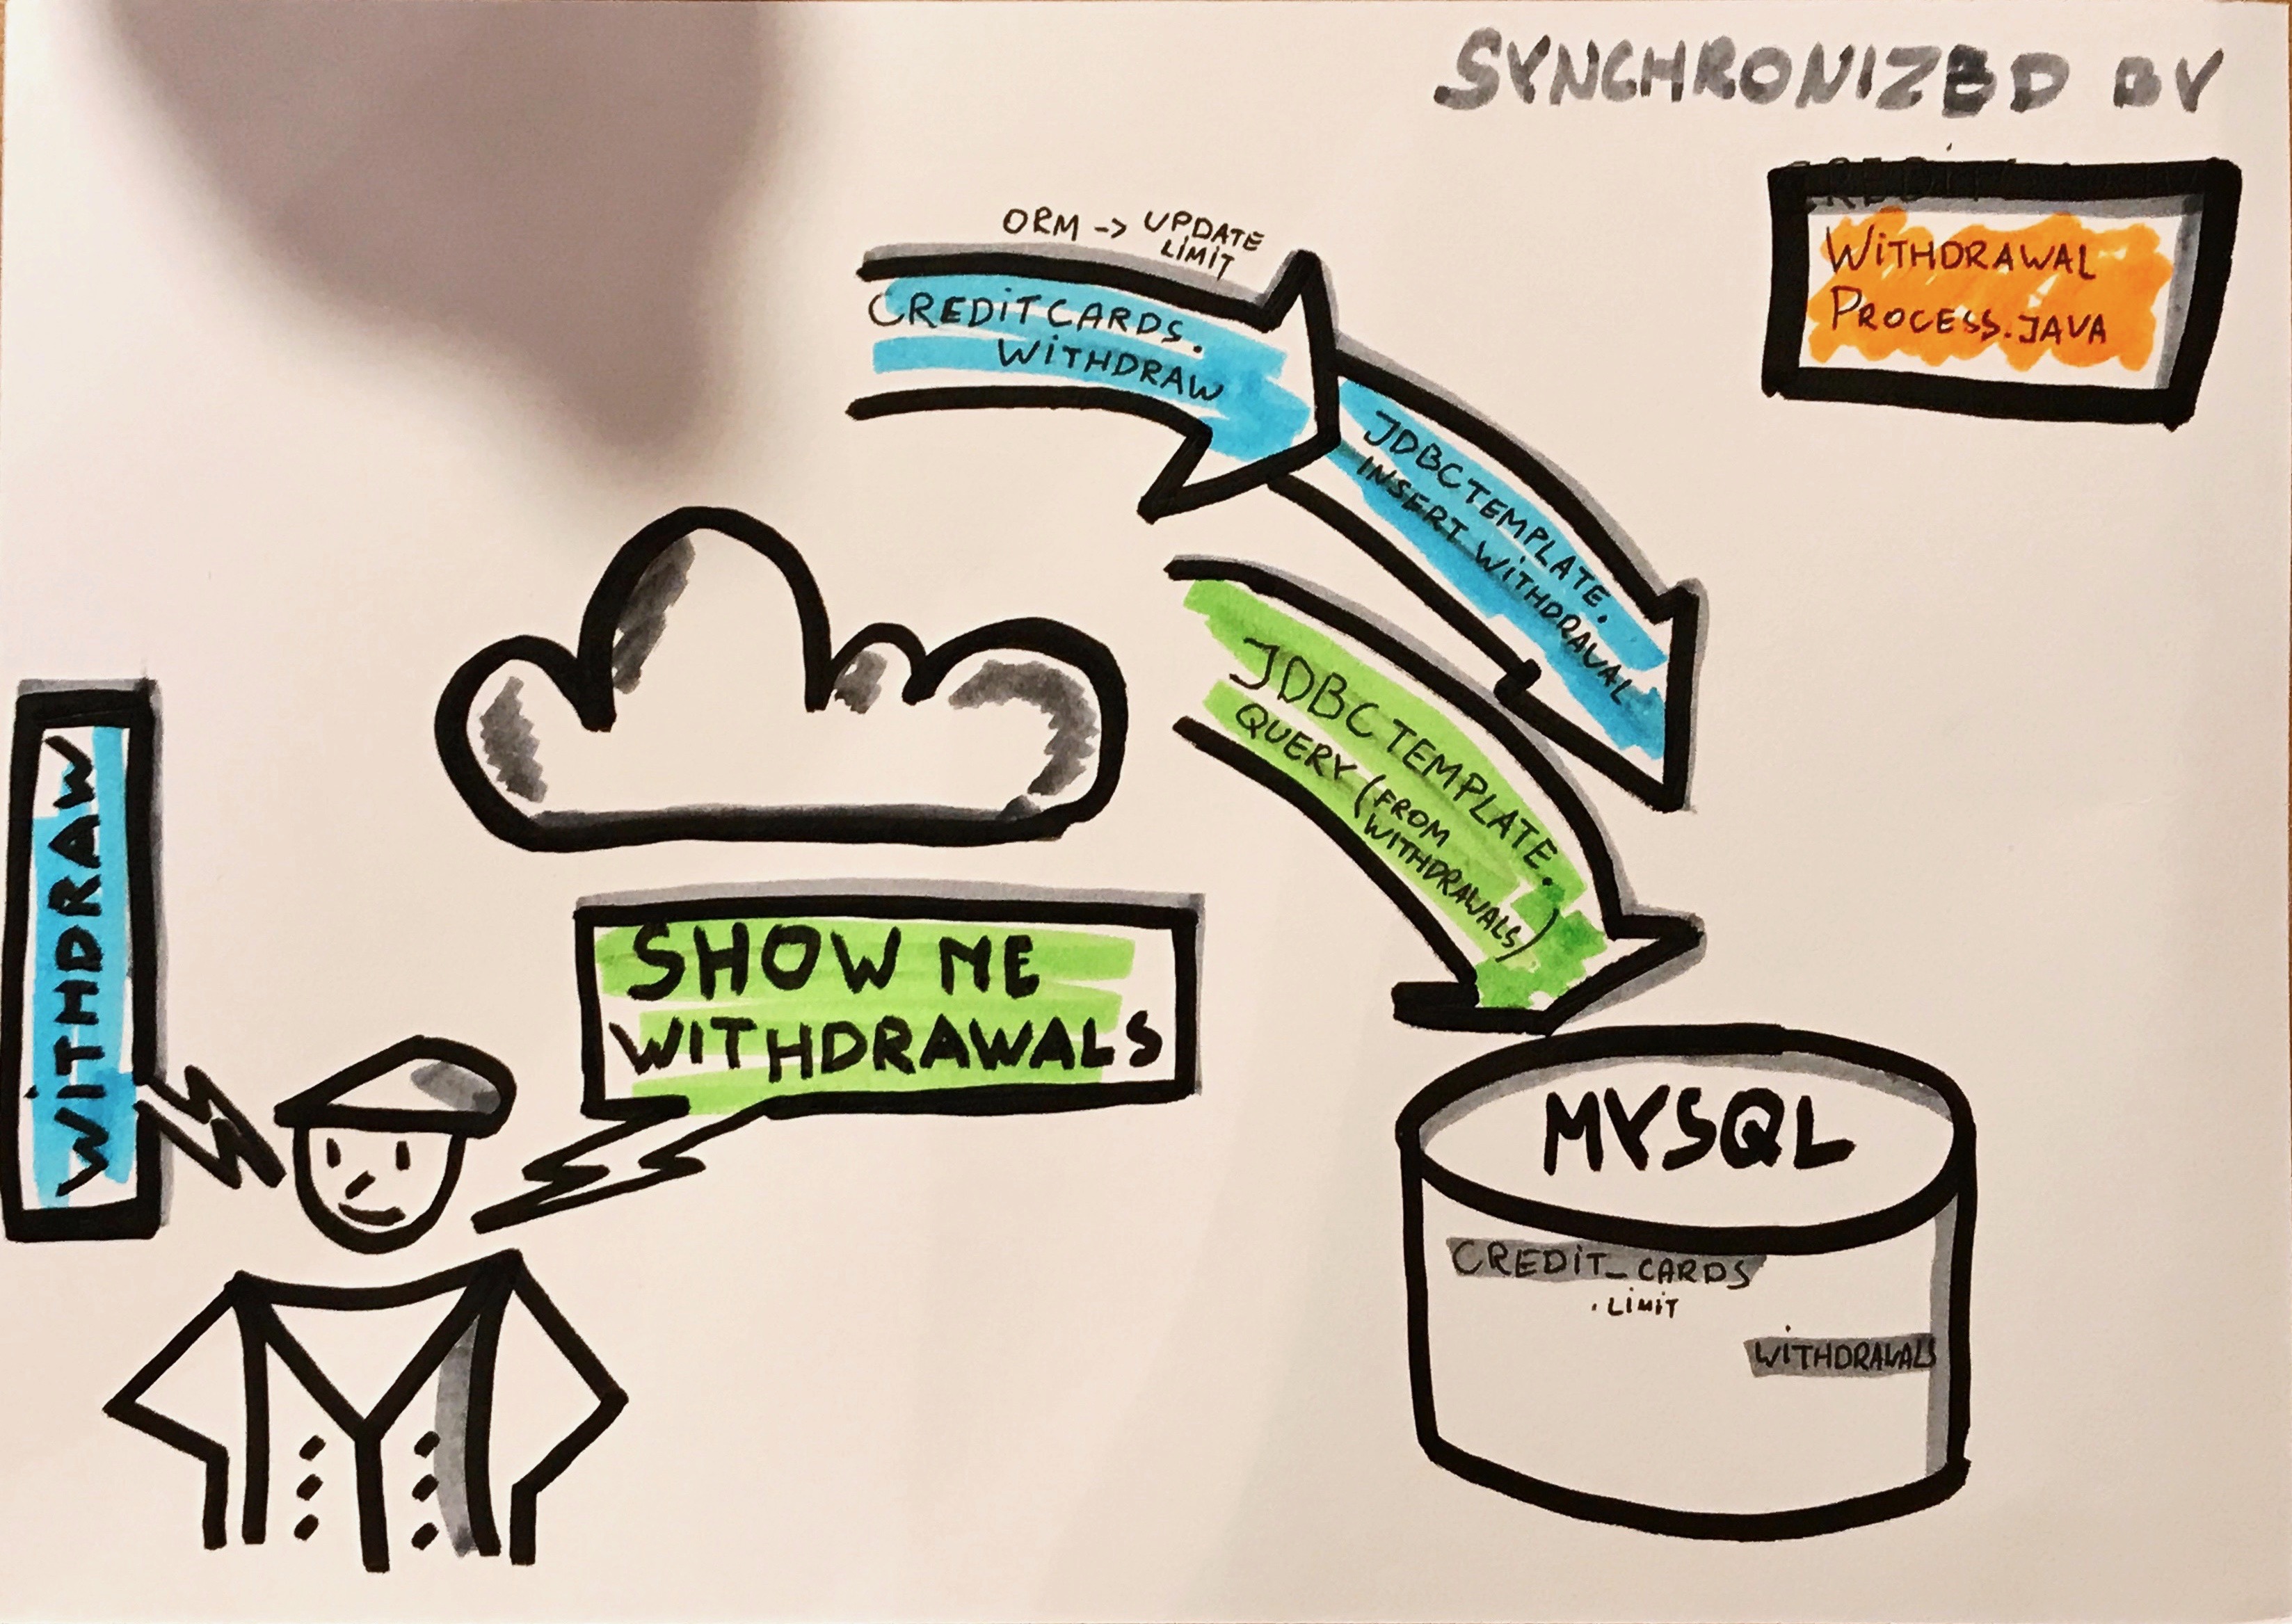 SYNCHRONIZED BY
WITHDRAWAL
PROCESS.JAVA
ORM -> UPDATE
LIMIT
CREDITCARDS.
WITHDRAW
JDBCTEMPLATE.
INSERT WITHDRAWAL
JDBCTEMPLATE.
QUERY (FROM
WITHDRAWALS)
WITHDRAW
SHOW ME
WITHDRAWALS
MYSQL
CREDIT_CARDS
. LIMIT
WITHDRAWALS